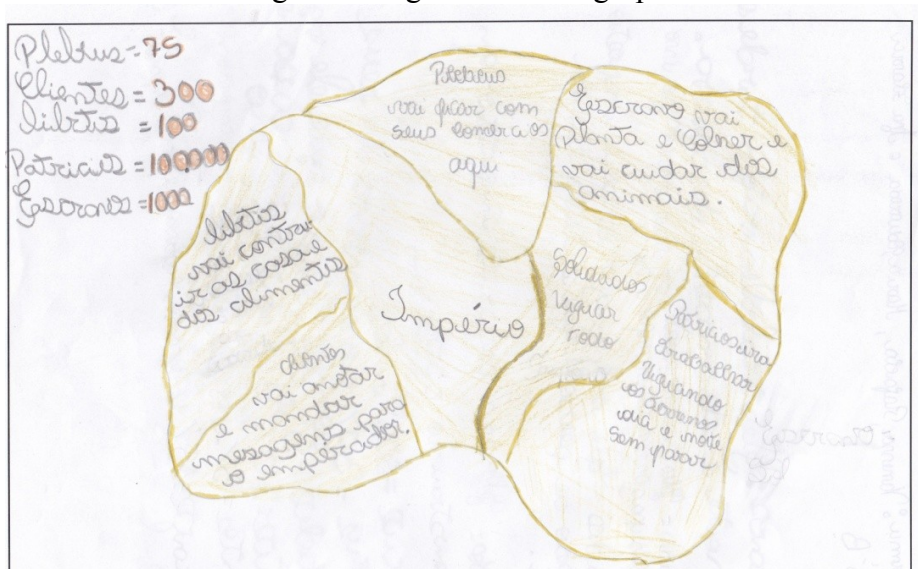 Plebius=75
Clientes=300
libitis=100
Patricios=100,000
Escravos=1000
Plebeus
vai ficar com
seus comercios
aqui
Escravo vai
Planta e Colher e
vai cuidar dos
animais.
libitis
vai contru
ir as casa e
dos alimentos
Império
Soldados
Viguar
Todo
Patricios ira
trabalhar
Viguando
os
dia e noite
sem parar
clientes
vai anotar
e mandar
mesagens para
o imperador.
Escravo